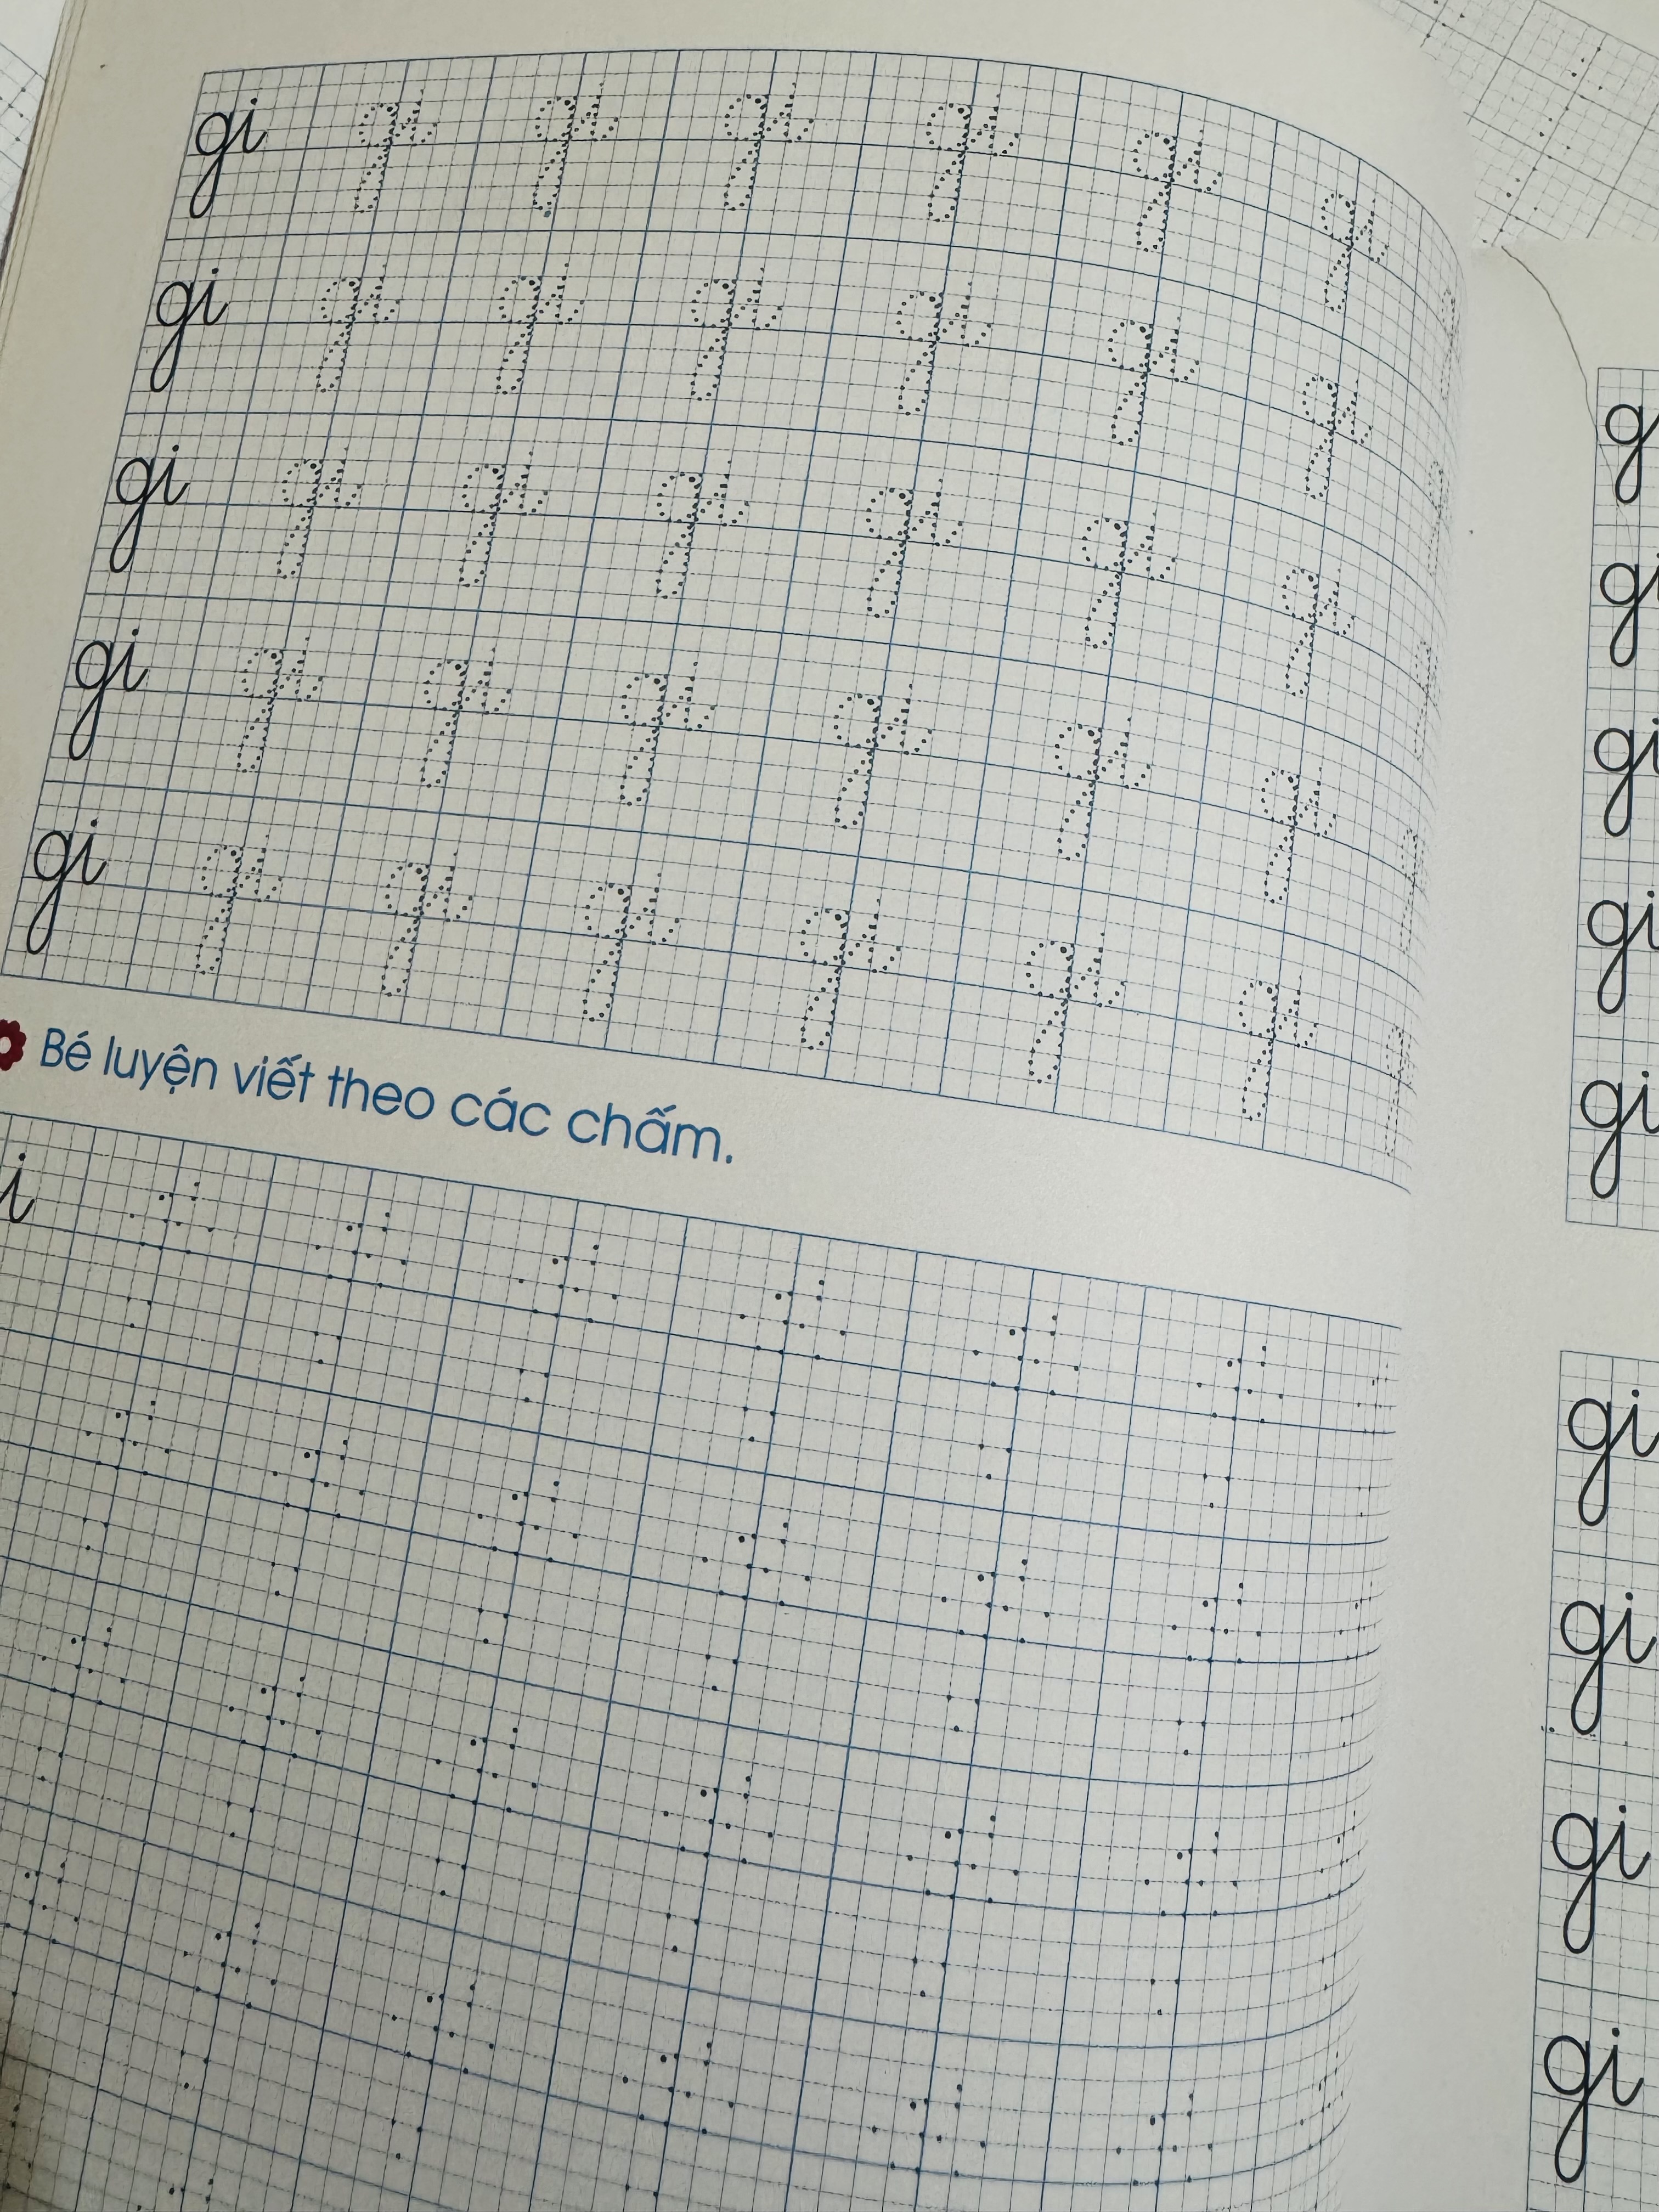 gi gi gi gi gi gi gi
gi gi gi gi gi gi gi
gi gi gi gi gi gi gi
gi gi gi gi gi gi gi
gi gi gi gi gi gi gi
Bé luyện viết theo các chấm.
i
gi
gi
gi
gi
gi
gi
gi
gi